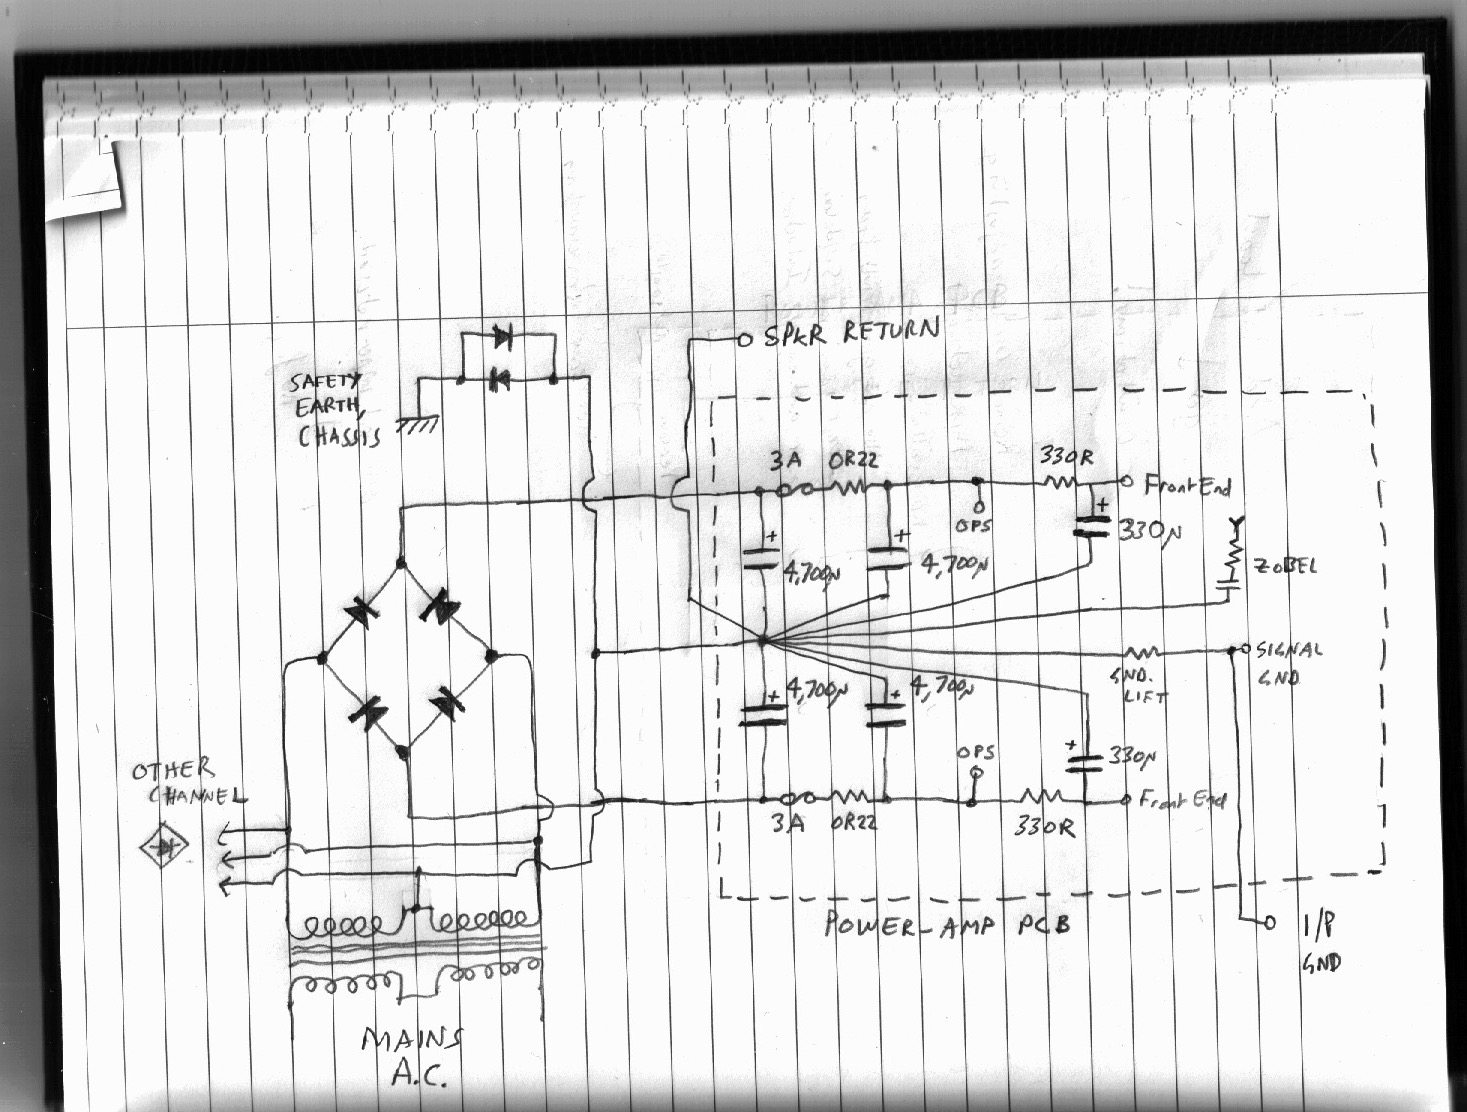 SPKR RETURN
SAFETY
EARTH,
CHASSIS
3A 0R22
330R
Front End
OPS
+
330µ
+
4,700µ
+
4,700µ
ZOBEL
SIGNAL
GND
GND.
LIFT
+
4,700µ
+
4,700µ
OPS
+
330µ
Front End
3A 0R22
330R
OTHER
CHANNEL
POWER-AMP PCB
I/P
GND
MAINS
A.C.